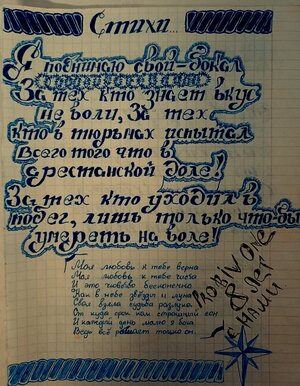 Стихи...
Я поднимаю свой бокал
За тех кто знает вкус
неволи, За тех
кто в тюрьмах испытал
Всего того что в
арестанской доле!
За тех кто уходил в
побег, лишь только что-бы
умереть на воле!
Моя любовь к тебе верна
Моя любовь к тебе чиста
И это чувство бесконечно
Как в небе звёзды и луна
Свела судьба разлука
От куда срок нам страшный сон
И каждый день молю я Бога
Ведь всё решает только он.